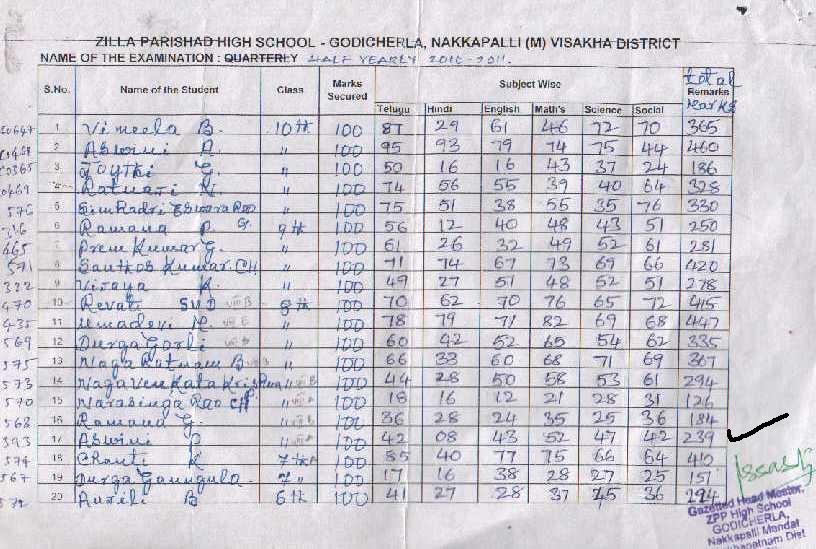 ZILLA PARISHAD HIGH SCHOOL - GODICHERLA, NAKKAPALLI (M) VISAKHA DISTRICT
NAME OF THE EXAMINATION : QUARTERLY HALF YEARLY 2010-2011.
S.No. Name of the Student Class Marks Secured Subject Wise total Remarks marks
Telugu Hindi English Math's Science Social
1 Vimeela B. 10th 100 87 29 61 46 72 70 365
2 Aswini 100 95 93 79 74 75 44 460
3 Joythi G. " 100 50 16 16 43 37 24 186
Ratnari K. " 100 74 56 55 39 40 64 328
576 5 Simhadri Eswara Rao 100 75 51 38 55 35 76 330
6 Ramana P. 9th 100 56 12 40 48 43 51 250
465 7 Prem Kumar G. " 100 61 26 32 49 52 61 281
591 8 Santhos Kumar.CH " 100 71 74 67 73 69 66 420
322 9 Vijaya K. " 100 49 27 51 48 52 51 278
470 10 Revati 8th 100 70 62 70 76 65 72 415
435 11 Umadevi M. " 100 78 79 71 82 69 68 447
569 12 Durga Gorli " 100 60 42 52 65 54 62 335
575 13 Naga Ratnam B 100 66 33 60 68 71 69 367
573 14 Naga Venkata Krishna " 100 44 28 50 58 53 61 294
570 15 Narasinga Rao CH " 100 18 16 12 21 28 31 126
568 16 Ramana G. " 100 36 28 24 35 25 36 184
393 17 Aswini P " 100 42 08 43 52 47 42 239
574 18 Chanti K 7th 100 85 40 77 75 66 64 410
567 19 Durga Gaungula 7 " 100 17 16 38 28 27 25 151
20 B 6th 100 41 27 28 37 25 36 194
Gazetted Head Master,
ZPP High School
GODICHERLA,
Nakkapalli Mandal
Dist